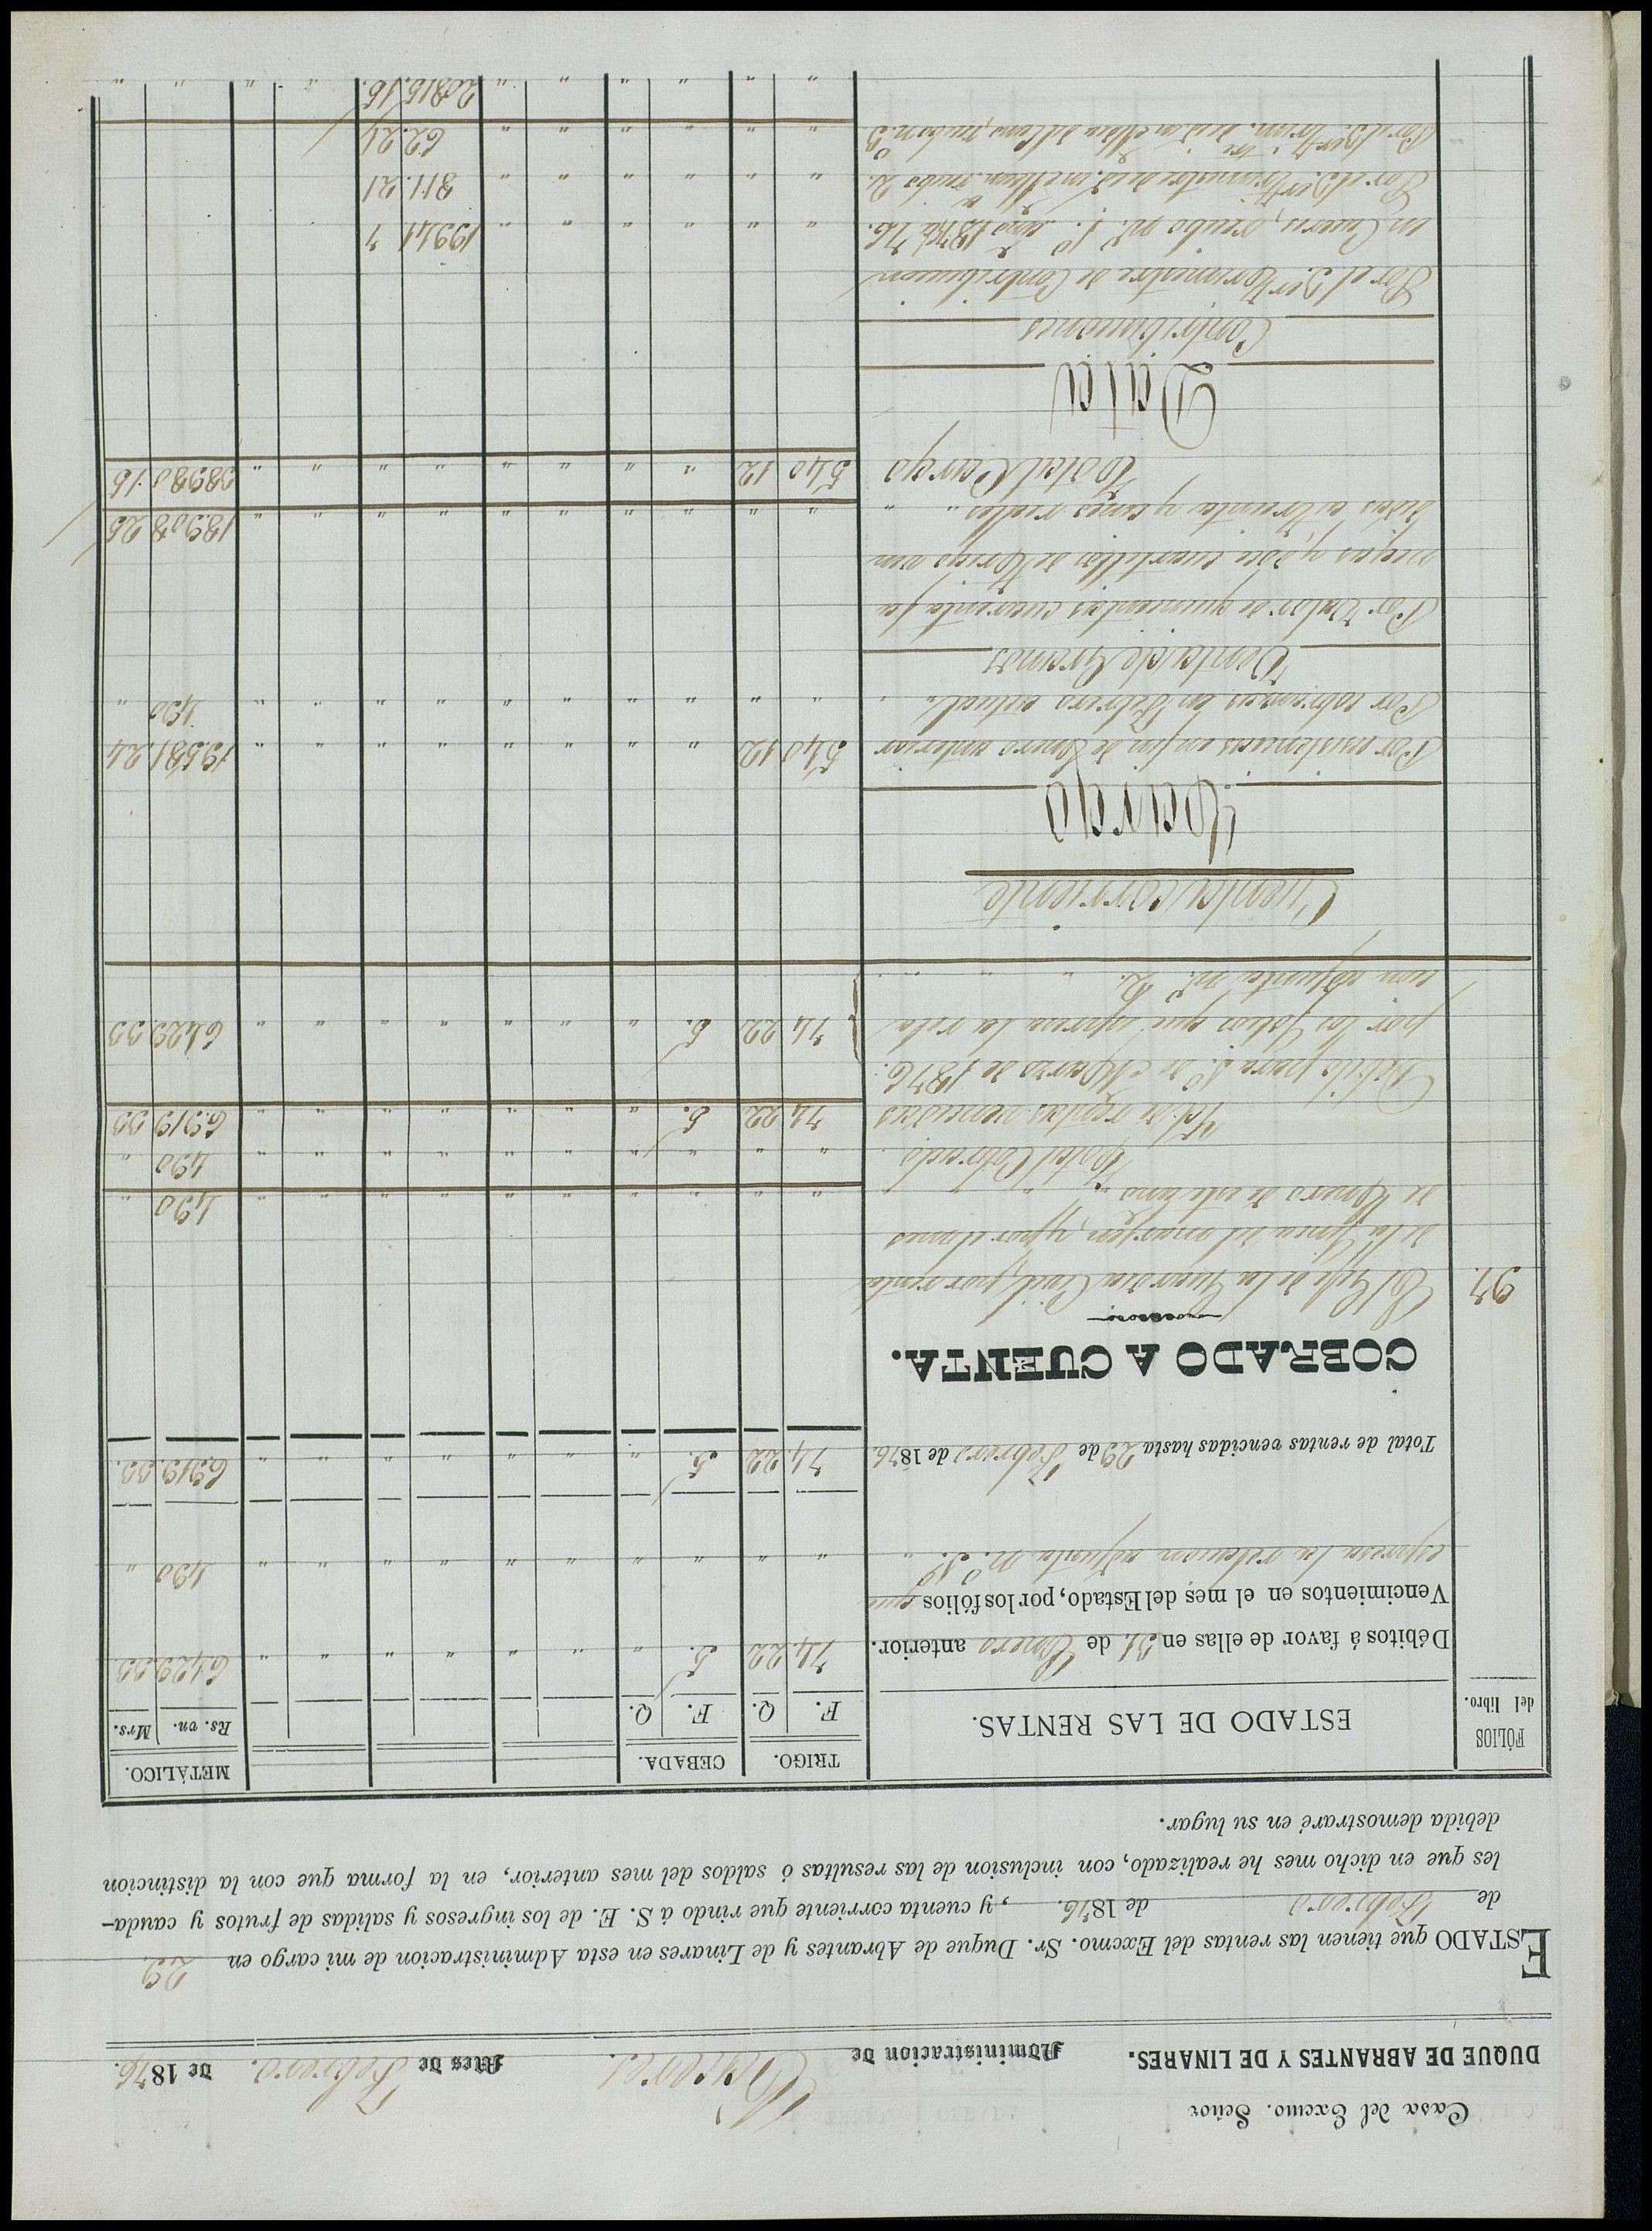 Casa del Excmo. Señor
DUQUE DE ABRANTES Y DE LINARES. Administracion de Cáceres. Mes de Febrero. de 1876.
ESTADO que tienen las rentas del Excmo. Sr. Duque de Abrantes y de Linares en esta Administracion de mi cargo en 29
de Febrero de 1876. , y cuenta corriente que rindo á S. E. de los ingresos y salidas de frutos y cauda-
les que en dicho mes he realizado, con inclusion de las resultas ó saldos del mes anterior, en la forma que con la distincion
debida demostraré en su lugar.
FÓLIOS del libro. ESTADO DE LAS RENTAS. TRIGO. CEBADA. METÁLICO.
F. Q. F. Q. Rs. vn. Mrs.
Débitos á favor de ellas en 31 de Enero anterior. 74 22 5. " " " " " " " 6429.33
Vencimientos en el mes del Estado, por los fólios que
espresa la relacion adjunta N.º 1.º " " " " " " " " " " " 490 "
Total de rentas vencidas hasta 29 de Febrero de 1876. 74 22 5. " " " " " " " " 6919.33.
COBRADO A CUENTA.
97. El Gefe de la Guardia Civil, por renta
de la finca del margen, y por el mes
de Enero de este año " " " " " " " " " " " 490 "
Total Cobrado. " " " " " " " " " " 490 "
Yd. de rentas vencidas 74 22 5. " " " " " " " 6.919 33
Débito para 1.º de Marzo de 1876.
por los folios que espresa la rela 74 22 5. " " " " " " " 6429.33
cion adjunta n.º 2.
Cuenta corriente
Cargo
Por existencias en fin de Enero anterior 540 12 " " " " " " " " 19581.24
Por cobranzas en Febrero actual. " " " " " " " " " " 490 "
Venta de Granos
Por valor de quinientas cuarenta fa
negas y doce cuartillos de trigo ven
didas a treinta y cinco reales " " " " " " " " " " " 18908 26
Total Cargo 540 12 " " " " " " " " 38980.16
Data
Contribuciones
Por el 3.er trimestre de Contribucion
en Cáceres, recibo n.º 1.º año 1875 á 76. " " " " " " 19941 7
Por el 3.er trimestre de id. en recibo 2. " " " " " " 811.21
Por el 3.er trim.tre de id. en recibo n.º 3 " " " " " " 62.21
" " " " " " 20815.15. " " " "